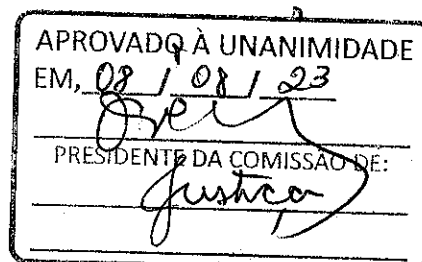 APROVADO À UNANIMIDADE
EM, 08 / 08 / 23
PRESIDENTE DA COMISSÃO DE:
Justiça